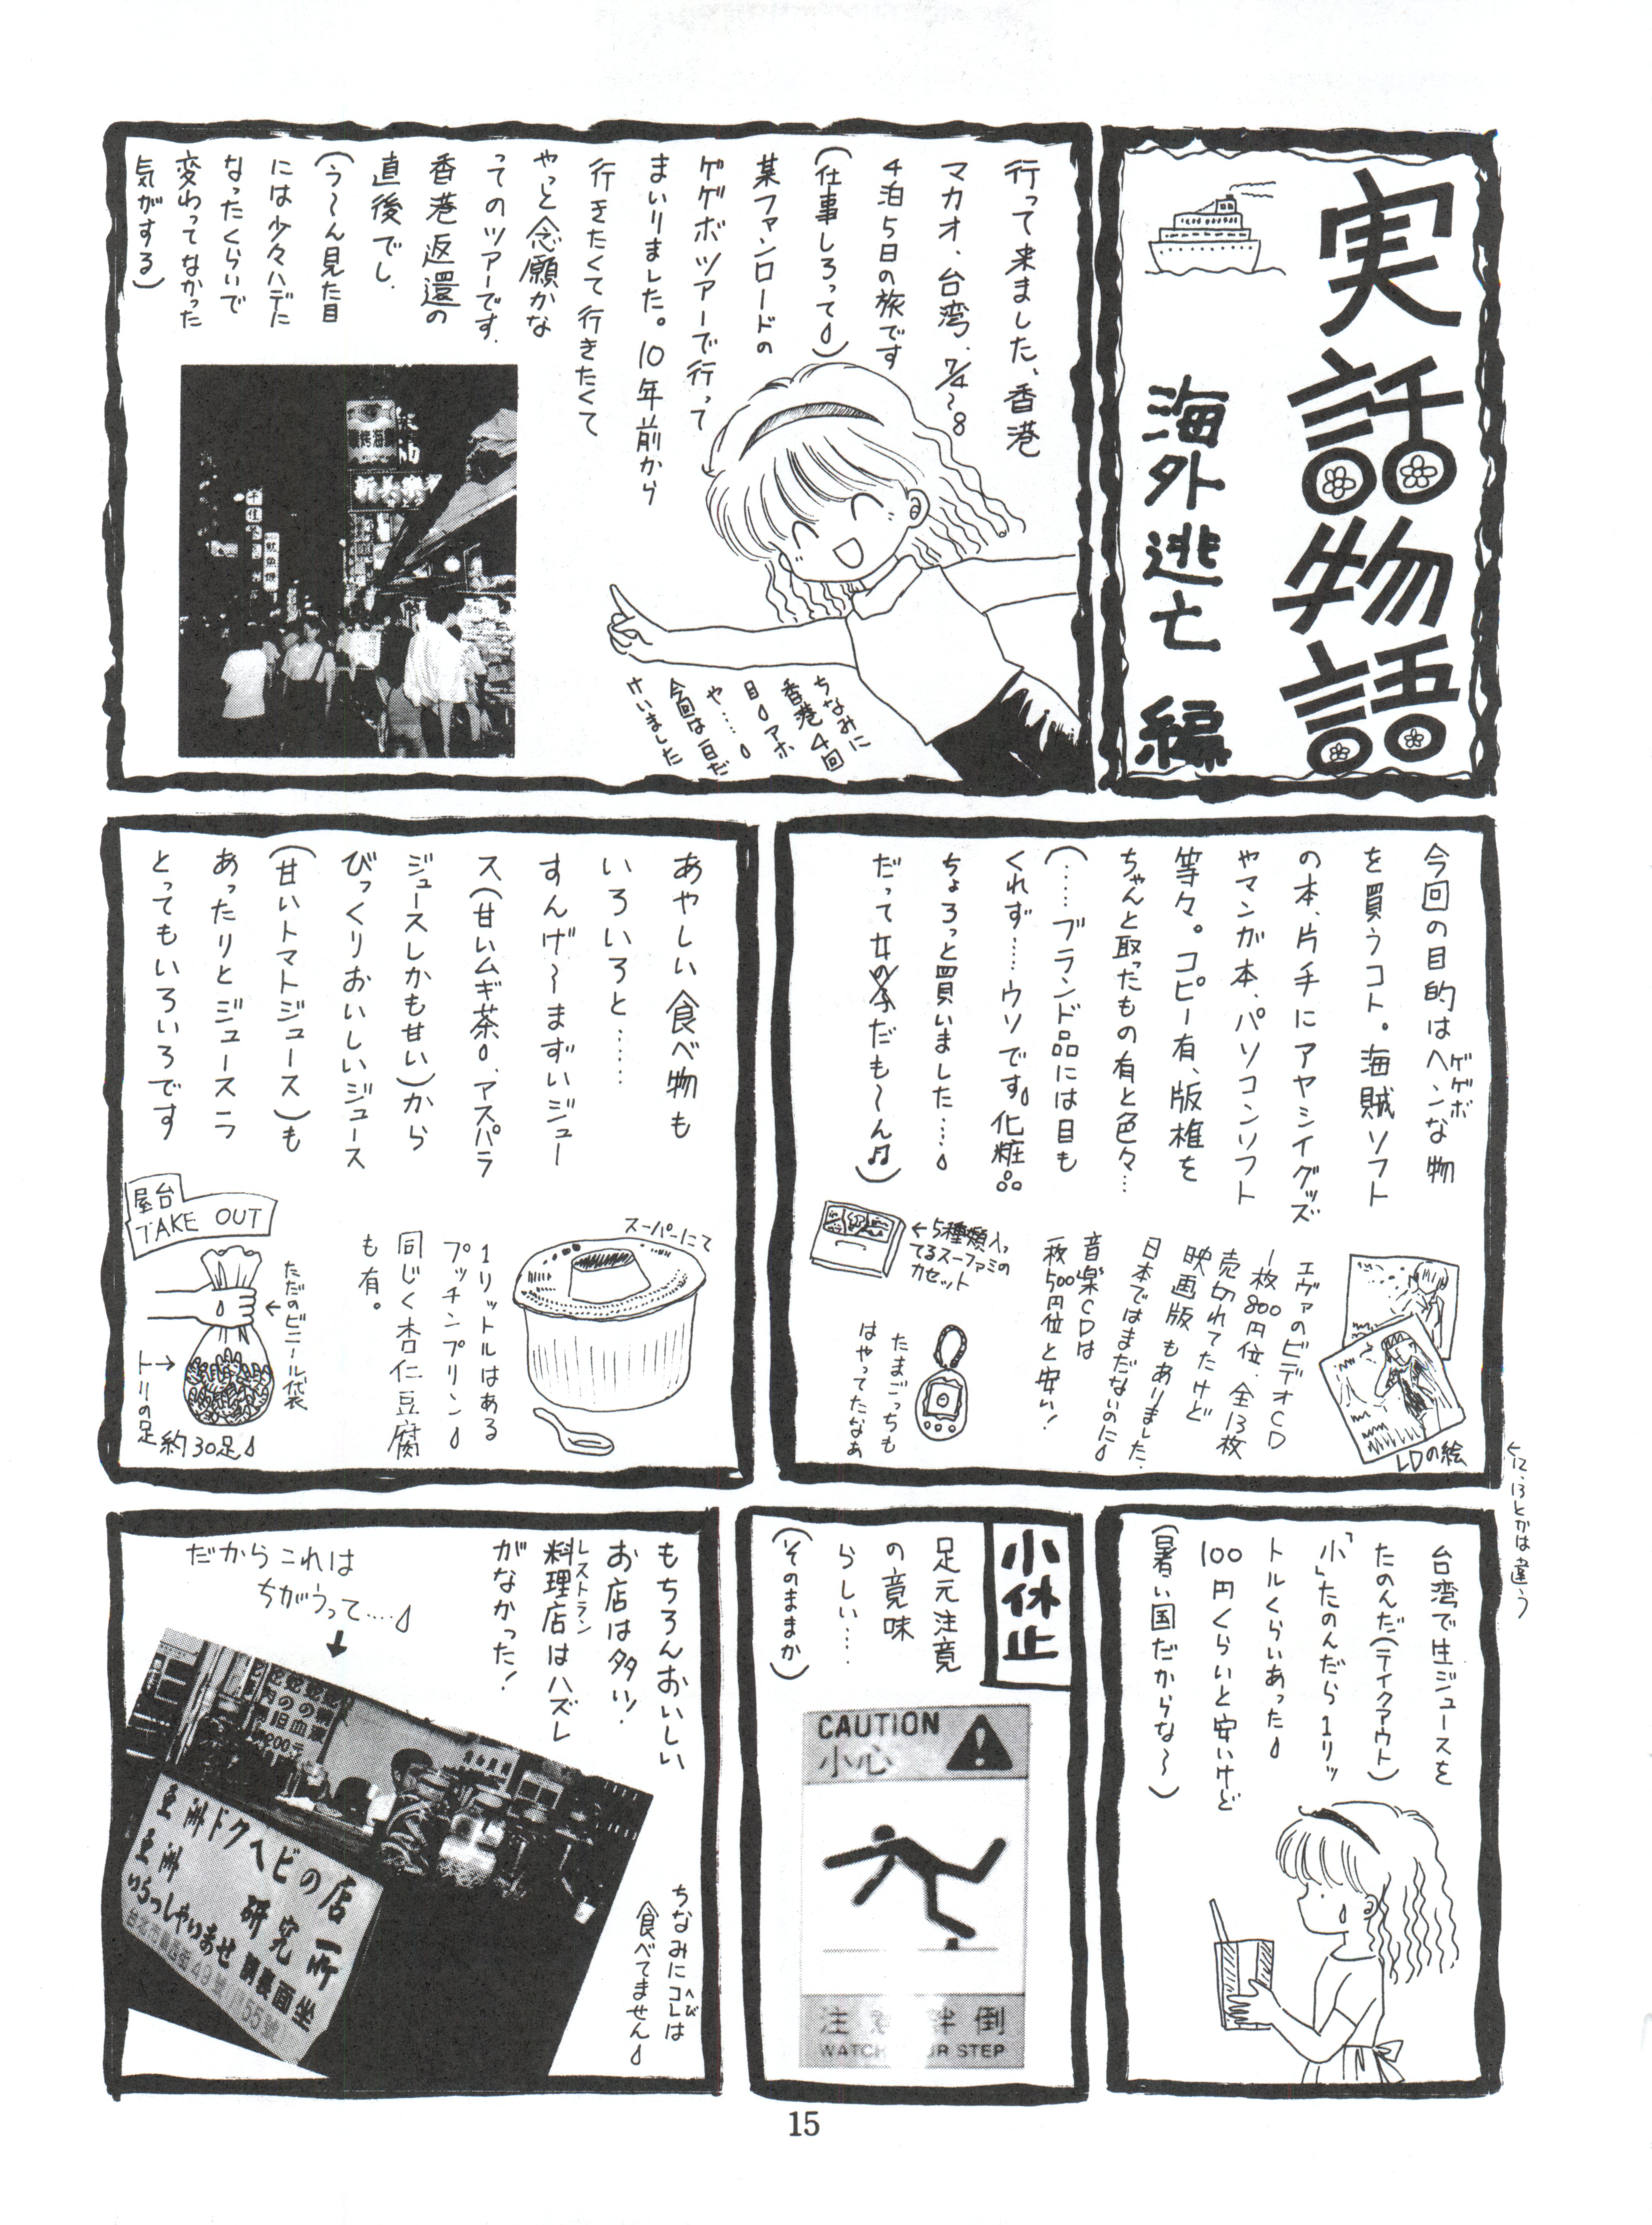 実話物語
海外逃亡 編
行って来ました、香港
マカオ、台湾、7/4〜8
4泊5日の旅です
(仕事しろって)
某ファンロードの
ゲゲボツアーで行って
まいりました。10年前から
行きたくて行きたくて
やっと念願かな
ってのツアーです。
香港返還の
直後でし、
(う〜ん見た目
には少々ハデに
なったくらいで
変わってなかった
気がする)
ちなみに
香港4回
目アホ
や……
今回は一日だ
けいました
今回の目的はヘンな物
ゲゲボ
を買うコト。海賊ソフト
の本、片手にアヤシイグッズ
やマンガ本、パソコンソフト
等々。コピー有、版権を
ちゃんと取ったもの有と色々…
(……ブランド品には目も
くれず……ウソです。化粧品
ちょろっと買いました……
だって女の子だも〜ん♫)
LDの絵
エヴァのビデオCD
一枚800円位、全13枚
売切れてたけど
映画版もありました。
日本ではまだないのに
音楽CDは
一枚500円位と安い!
←5種類入っ
てるスーファミの
カセット
たまごっちも
はやってたなぁ
←12、13とかは違う
あやしい食べ物も
いろいろと……
すんげ〜まずいジュー
ス(甘いムギ茶、アスパラ
ジュースしかも甘い)から
びっくりおいしいジュース
(甘いトマトジュース)も
あったりとジュースラ
とってもいろいろです
スーパーにて
1リットルはある
プッチンプリン
同じく杏仁豆腐
も有。
屋台
TAKE OUT
←ただのビニール袋
トリの足→
約30足
台湾で生ジュースを
たのんだ(テイクアウト)
「小」たのんだら1リッ
トルくらいあった
100円くらいと安いけど
(暑い国だからな〜)
小休止
足元注意
の意味
らしい……
(そのままか)
CAUTION
小心
注意絆倒
WATCH YOUR STEP
もちろんおいしい
お店は多い!
レストラン
料理店はハズレ
がなかった!
だからこれは
ちがうって……
↓
亜洲ドクヘビの店
亜洲 研究所
いらっしゃいませ 請裏面坐
ちなみにコレは
へび
食べてません
15